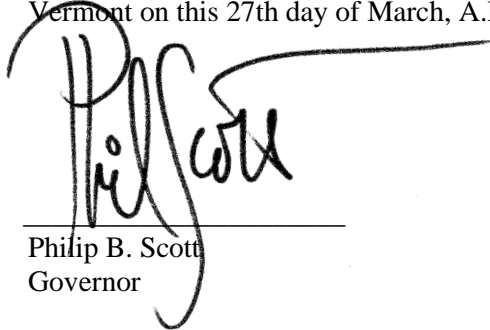 Vermont on this 27th day of March, A.
Phil Scott
Philip B. Scott
Governor